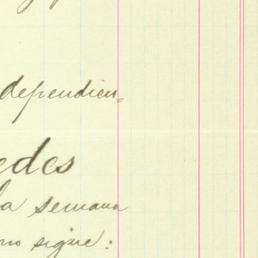 dependien=
edes
la semana
mo sigue: